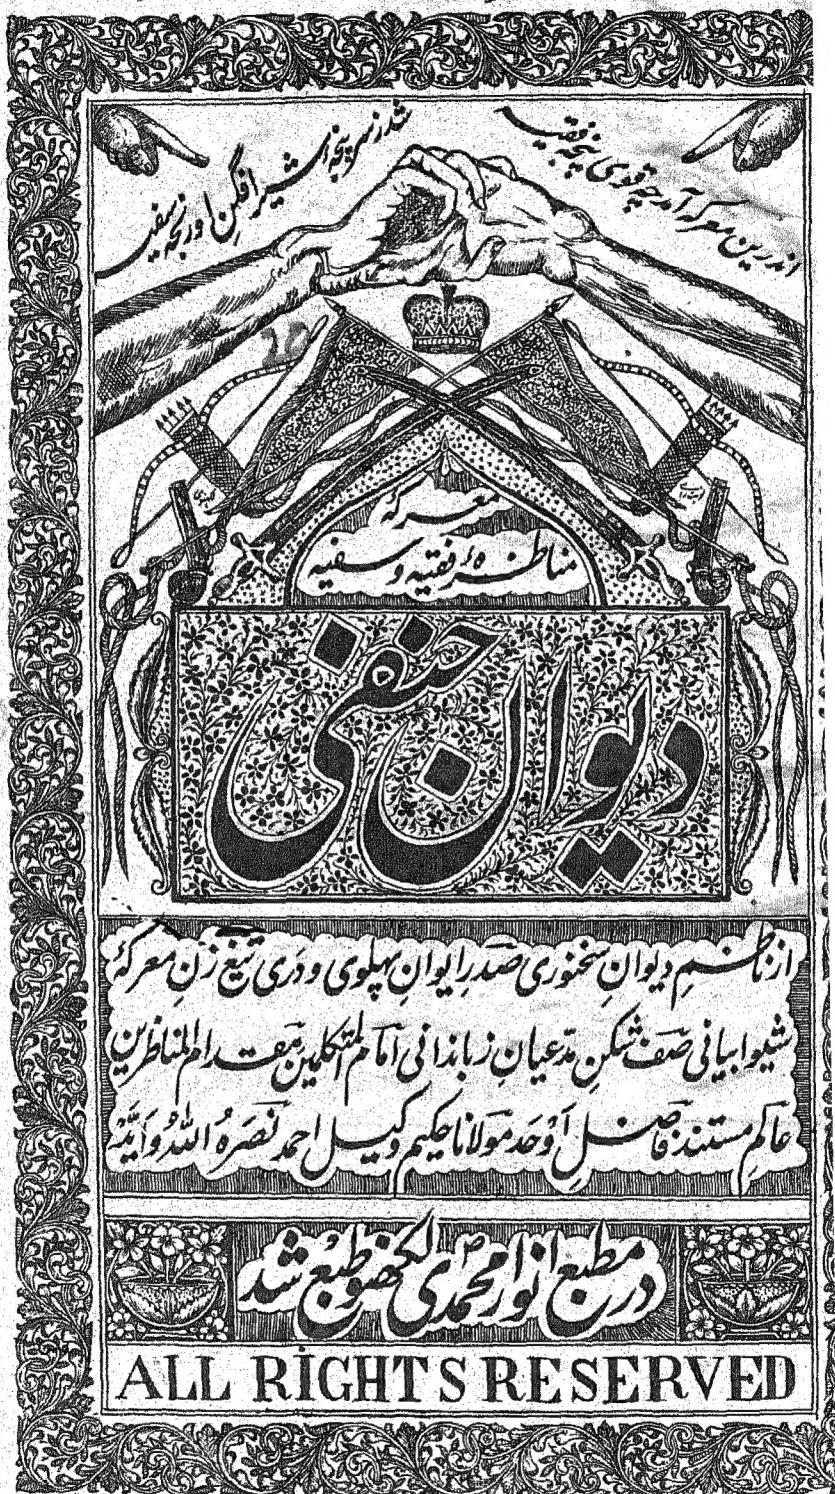 اندرین معرکه آمد چه قوی پنجه فقیه
شد ز سرپنجۀ شیر افگن او رنجه سفیه
معرکۀ
مناظرۀ فقیه و سفیه
دیوان حنفی
از ناظمِ دیوانِ سخنوری صدرِ ایوانِ پهلوی و دَری تیغ زنِ معرکۀ
شیوا بیانی صَف شکنِ مدّعیانِ زباندانی امام المتکلمین مقدام المناظرین
عالمِ مستند فاضلِ اَوحَد مولانا حکیم وکیل احمد نَصَرَهُ اللّٰهُ وَاَیَّدَهُ
در مطبع انوار محمدی لکھنؤ طبع شد
ALL RIGHTS RESERVED